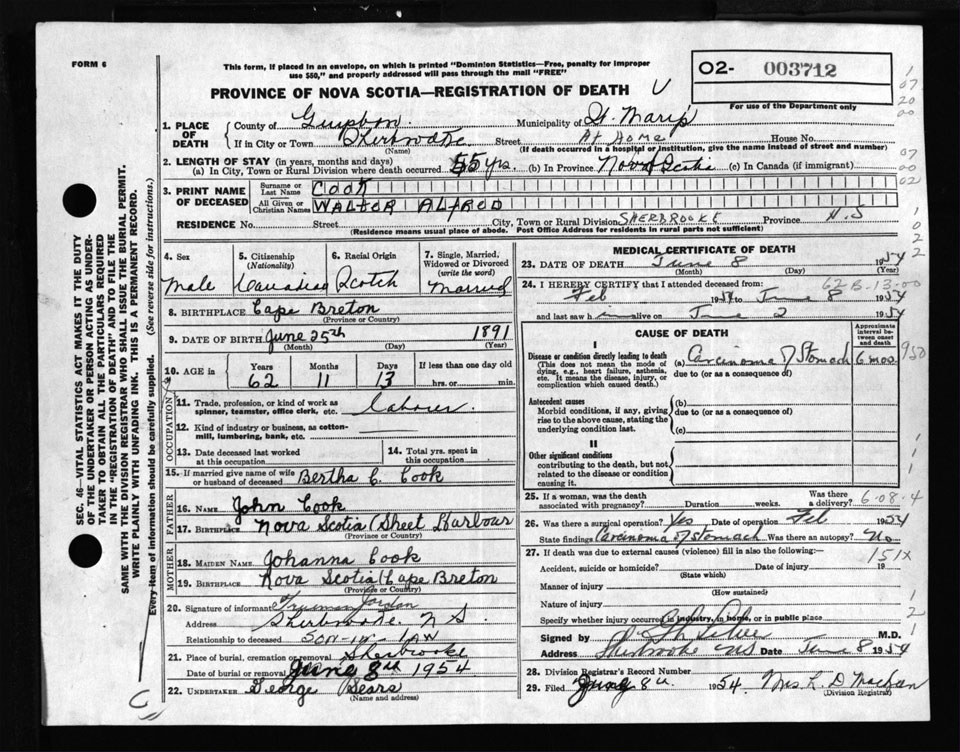 FORM 6
This form, if placed in an envelope, on which is printed "Dominion Statistics—Free, penalty for improper
use $50," and properly addressed will pass through the mail "FREE"
PROVINCE OF NOVA SCOTIA—REGISTRATION OF DEATH
02- 003712
For use of the Department only
1. PLACE OF DEATH
County of Municipality of St. Mary's
If in City or Town Sherbrooke Street At Home House No.
(Name) (If death occurred in a hospital or institution, give the name instead of street and number)
2. LENGTH OF STAY (in years, months and days)
(a) In City, Town or Rural Division where death occurred 55 yrs. (b) In Province Nova Scotia (c) In Canada (if immigrant)
3. PRINT NAME OF DECEASED
Surname or Last Name COOK
All Given or Christian Names WALTOR ALFROD
RESIDENCE No. Street City, Town or Rural Division SHERBROOKE Province N.S
(Residence means usual place of abode. Post Office Address for residents in rural parts not sufficient)
4. Sex Male
5. Citizenship (Nationality) Canadian
6. Racial Origin Scotch
7. Single, Married, Widowed or Divorced (write the word) Married
8. BIRTHPLACE Cape Breton
(Province or Country)
9. DATE OF BIRTH June 25th 1891
(Month) (Day) (Year)
10. AGE in Years 62 Months 11 Days 13 If less than one day old hrs. or min.
OCCUPATION
11. Trade, profession, or kind of work as spinner, teamster, office clerk, etc. Labourer.
12. Kind of industry or business, as cotton-mill, lumbering, bank, etc.
13. Date deceased last worked at this occupation
14. Total yrs. spent in this occupation
15. If married give name of wife or husband of deceased Bertha C. Cook
FATHER
16. Name John Cook
17. Birthplace Nova Scotia (Sheet Harbour
(Province or Country)
MOTHER
18. Maiden Name Johanna Cook
19. Birthplace Nova Scotia (Cape Breton
(Province or Country)
20. Signature of informant Freeman Jordan
Address Sherbrooke. N S.
Relationship to deceased SON-IN-LAW
21. Place of burial, cremation or removal Sherbrooke
Date of burial or removal June 1954
22. UNDERTAKER George Sears
(Name and address)
MEDICAL CERTIFICATE OF DEATH
23. DATE OF DEATH June 8 1954
(Month) (Day) (Year)
24. I HEREBY CERTIFY that I attended deceased from:
62 B.13-00
Feb 1954 to June 8 1954
and last saw him alive on June 2 1954
CAUSE OF DEATH
Approximate interval between onset and death
I
Disease or condition directly leading to death
(This does not mean the mode of dying, e.g., heart failure, asthenia, etc. It means the disease, injury, or complication which caused death.)
(a) Carcinoma of Stomach 6 mos.
due to (or as a consequence of)
Antecedent causes
Morbid conditions, if any, giving rise to the above cause, stating the underlying condition last.
(b)
due to (or as a consequence of)
(c)
II
Other significant conditions
contributing to the death, but not related to the disease or condition causing it.
25. If a woman, was the death associated with pregnancy? Duration weeks. Was there a delivery?
6-08-4
26. Was there a surgical operation? Yes Date of operation Feb 1954
State findings Carcinoma of Stomach Was there an autopsy? No
27. If death was due to external causes (violence) fill in also the following:—
151X
Accident, suicide or homicide? Date of injury 19
(State which)
Manner of injury
(How sustained)
Nature of injury
Specify whether injury occurred in industry, in home, or in public place
Signed by M.D.
Address Sherbrooke NS Date June 8 1954
28. Division Registrar's Record Number
29. Filed June 8 1954. Mrs
(Division Registrar)
SEC. 46—VITAL STATISTICS ACT MAKES IT THE DUTY
OF THE UNDERTAKER OR PERSON ACTING AS UNDER-
TAKER TO OBTAIN ALL THE PARTICULARS REQUIRED
IN THE "REGISTRATION OF DEATH" AND TO FILE THE
SAME WITH THE DIVISION REGISTRAR WHO SHALL ISSUE THE BURIAL PERMIT.
WRITE PLAINLY WITH UNFADING INK. THIS IS A PERMANENT RECORD.
Every item of information should be carefully supplied. (See reverse side for instructions.)